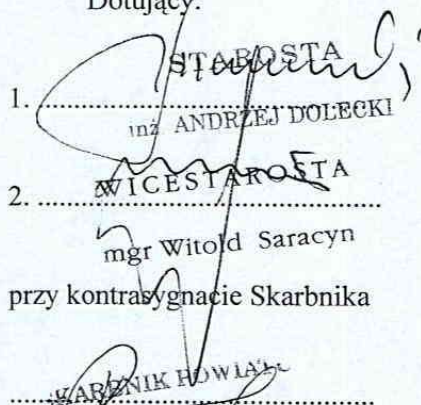 Dotujący:
STAROSTA
1. ........................................
inż. ANDRZEJ DOLECKI
WICESTAROSTA
2. ........................................
mgr Witold Saracyn
przy kontrasygnacie Skarbnika
SKARBNIK POWIATU
........................................